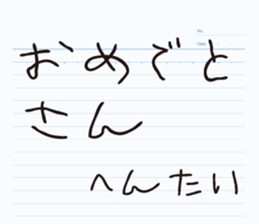 No.
Date
おめでと
さん
へんたい